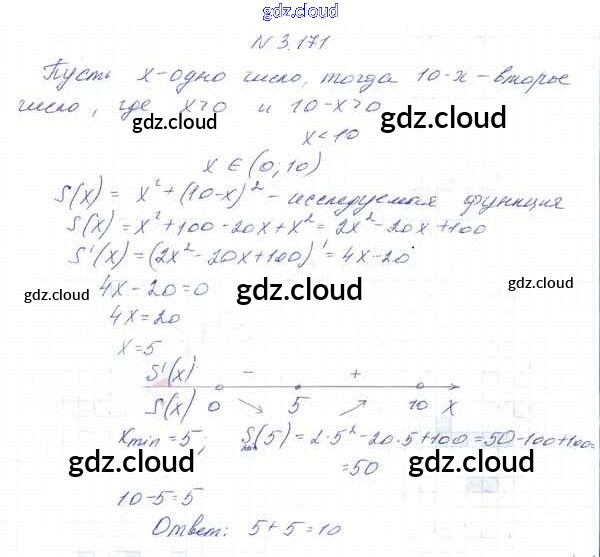 gdz.cloud
N 3.171
Пусть x-одно число, тогда 10-x-второе
число, где x>0 и 10-x>0
gdz.cloud gdz.cloud
x<10
x∈(0,10)
S(x) = x²+(10-x)² - исследуемая функция
S(x) = x²+100-20x+x² = 2x²-20x+100
S'(x) = (2x²-20x+100)' = 4x-20
4x-20=0
gdz.cloud gdz.cloud gdz.cloud
4x=20
x=5
S'(x) - +
S(x) 0 ↘ 5 ↗ 10 x
xmin = 5; Smin(5) = 2·5²-20·5+100 = 50-100+100=
=50
gdz.cloud gdz.cloud gdz.cloud
10-5=5
Ответ: 5+5=10
gdz.cloud gdz.cloud